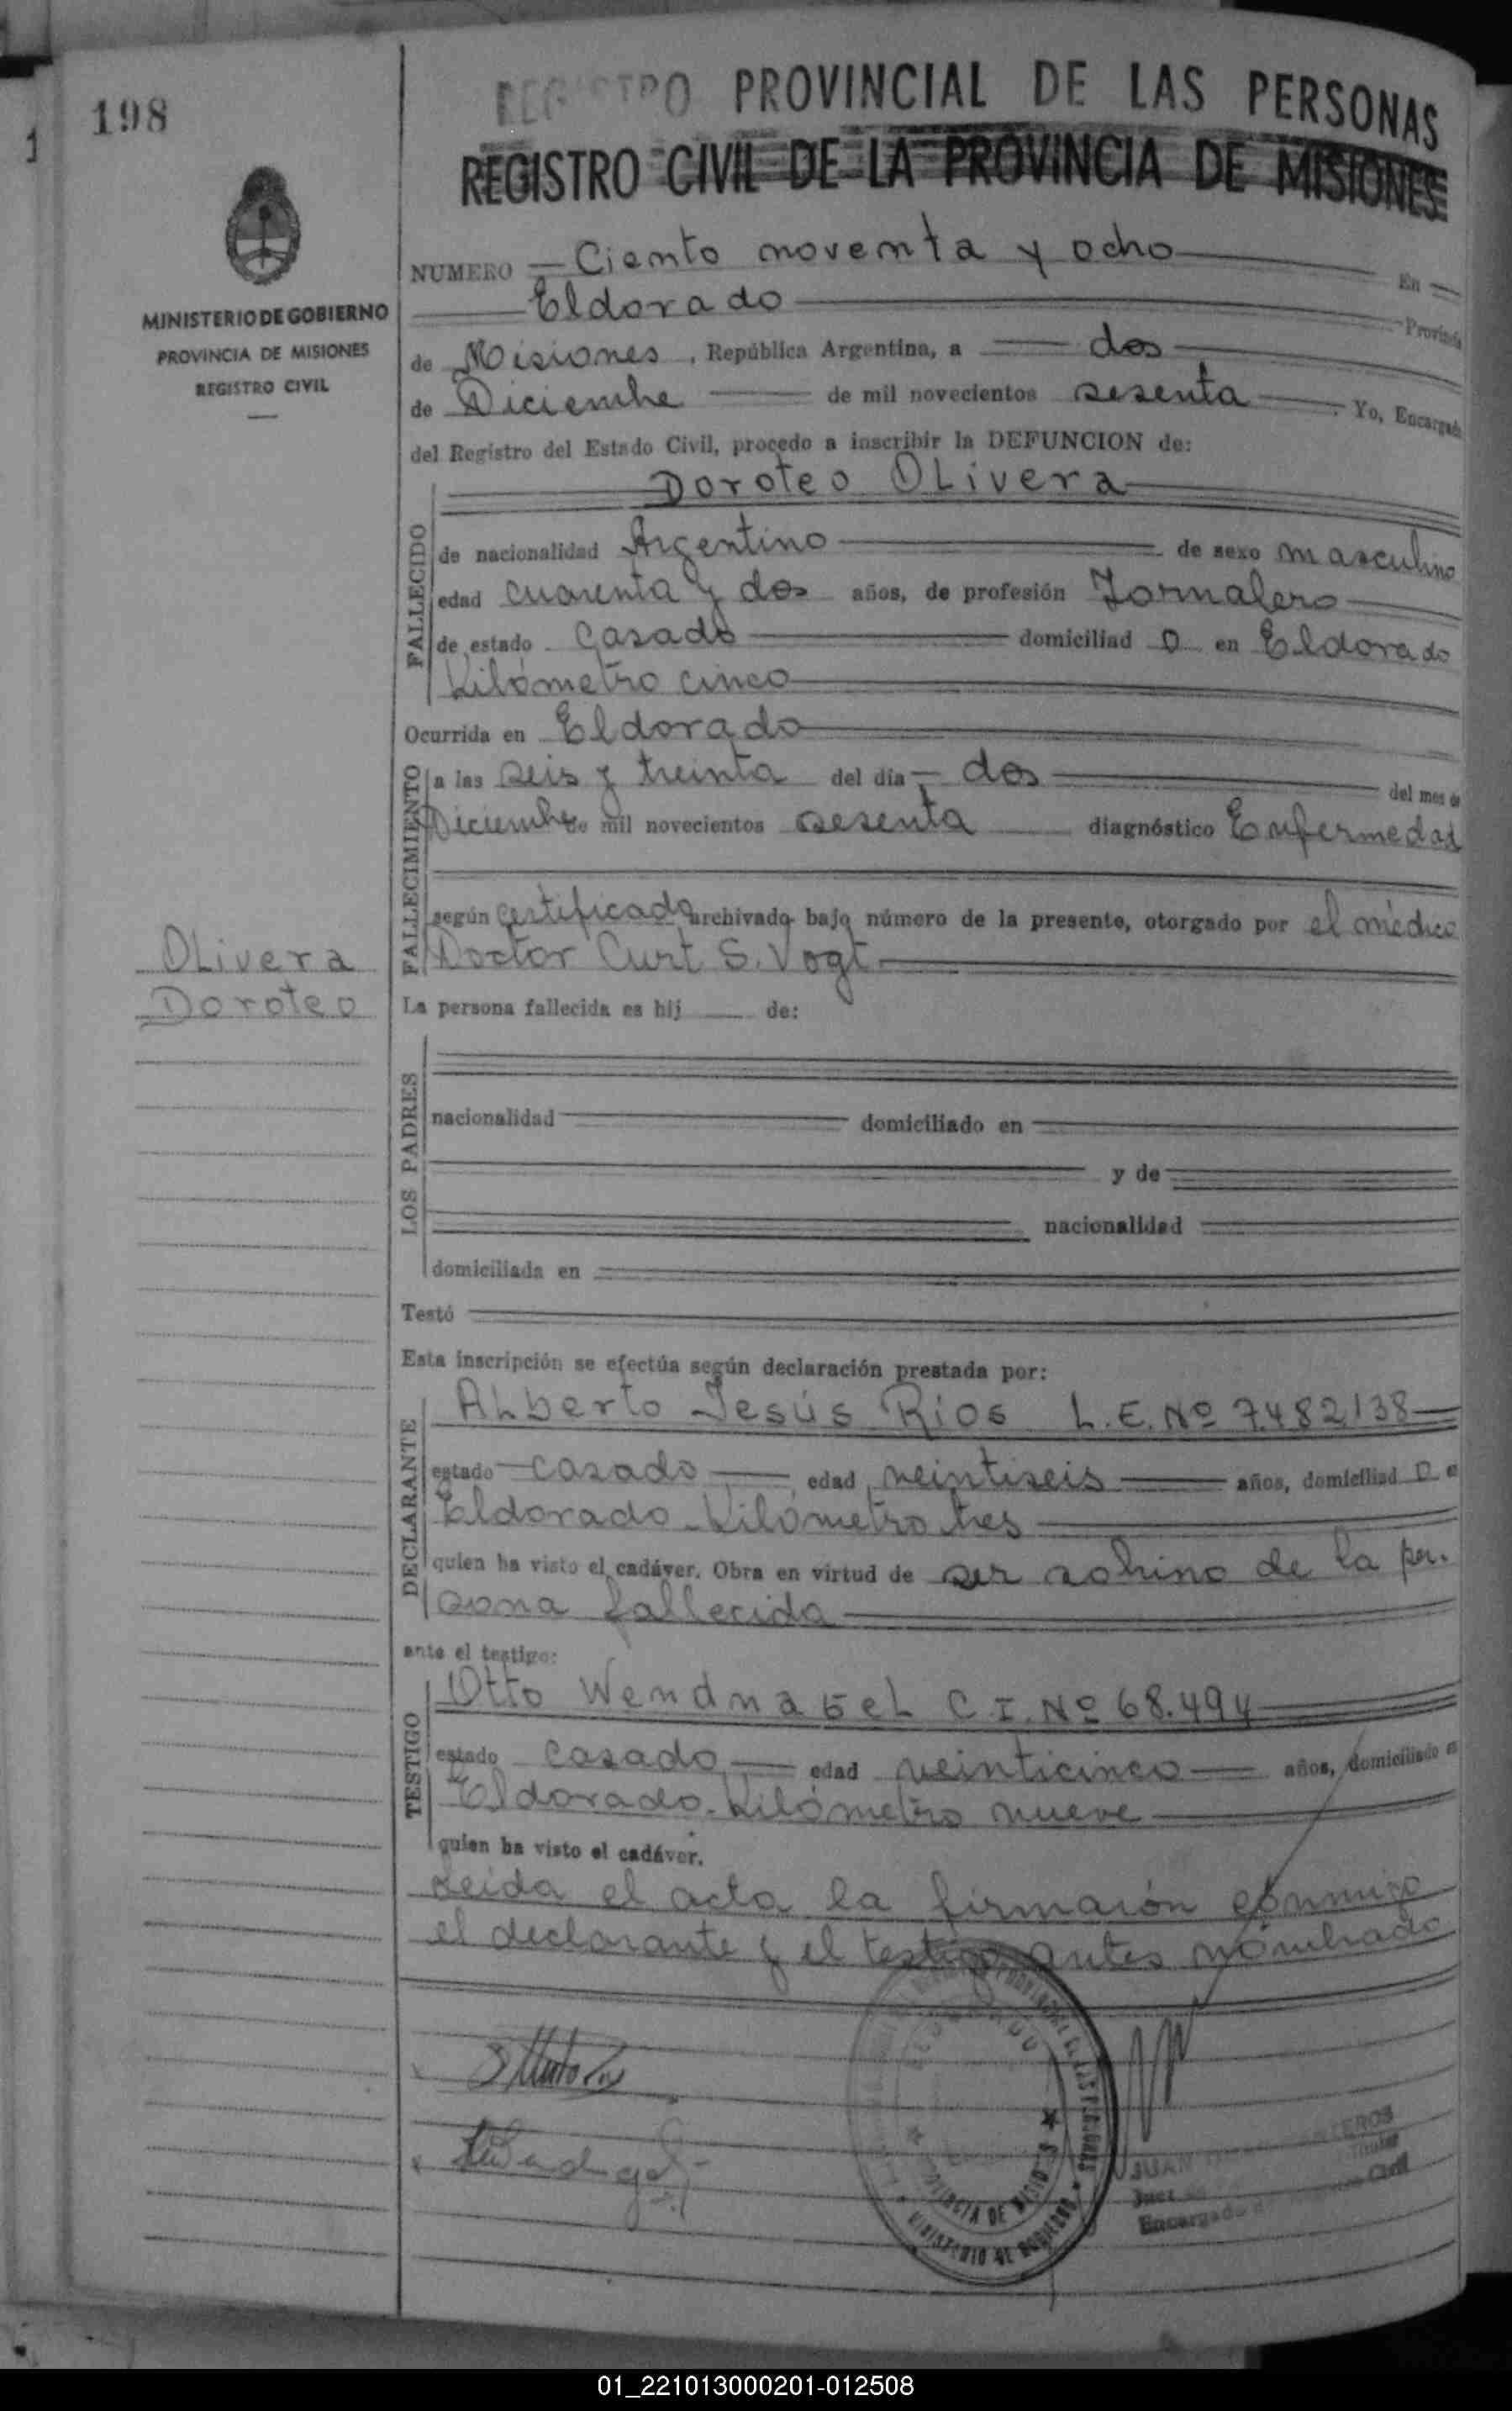 198
REGISTRO PROVINCIAL DE LAS PERSONAS
REGISTRO CIVIL DE LA PROVINCIA DE MISIONES
MINISTERIO DE GOBIERNO
PROVINCIA DE MISIONES
REGISTRO CIVIL
NUMERO Ciento noventa y ocho En
Eldorado Provincia
de Misiones, República Argentina, a dos
de Diciembre de mil novecientos sesenta. Yo, Encargado
del Registro del Estado Civil, procedo a inscribir la DEFUNCION de:
Doroteo Olivera
FALLECIDO
de nacionalidad Argentino de sexo masculino
edad cuarenta y dos años, de profesión Jornalero
de estado Casado domiciliad o en Eldorado
Kilómetro cinco
Ocurrida en Eldorado
FALLECIMIENTO
a las seis y treinta del día dos del mes de
Diciembre de mil novecientos sesenta diagnóstico Enfermedad
según certificado archivado bajo número de la presente, otorgado por el médico
Doctor Curt S. Vogt
Olivera
Doroteo
La persona fallecida es hij de:
LOS PADRES
nacionalidad domiciliado en
y de
nacionalidad
domiciliada en
Testó
Esta inscripción se efectúa según declaración prestada por:
DECLARANTE
Alberto Jesús Ríos L.E. Nº 7.482.138
estado casado edad veintiseis años, domiciliad o en
Eldorado-Kilómetro tres
quien ha visto el cadáver. Obra en virtud de ser sobrino de la per-
sona fallecida
ante el testigo:
TESTIGO
Otto Wendnagel C.I. Nº 68.494
estado casado edad veinticinco años, domiciliado en
Eldorado-Kilómetro nueve
quien ha visto el cadáver.
Leída el acta la firmaron conmigo
el declarante y el testigo antes nombrado
PROVINCIA DE MISIONES
MINISTERIO DE GOBIERNO
JUAN
Titular
Juez
Encargado Civil
01_221013000201-012508